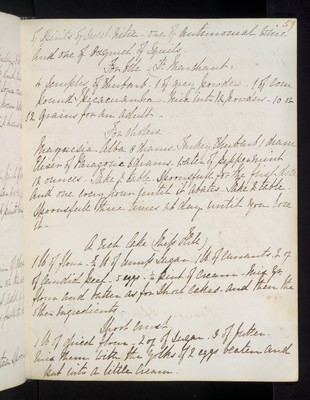 59
of Spirits of Sweet Nitre - one of Antimonial Wine
and one of Oxymel of Squills.
For the St. Marchant.
4 Scruples of Rhubarb - 1 of grey powder - 1 of Com
pound Ipecacuanha. Mix into 12 powders - 10 or
12 grains for an adult -
For Cholera
Magnesia Alba 2 drams Turkey Rhubarb 1 dram
Elixer of Paragoric 2 drams water of Peppermint
12 ounces. Take 2 table Spoonsfull for the first dose
and one every hour until it abates. Take 2 table
Spoonsfull three times a day until you lose
it -
A Rich Cake (Miss
1 lb of flour - ½ lb of lump Sugar. 1 lb of Currants. 2 oz
of Candid Peel - 5 eggs - ½ pint of Cream - Mix ye
flour and butter as for Short Cakes - and then the
other Ingredients -
Short crust
1 lb of dried flour - 2 oz of Sugar - 3 of butter -
mix them with the yolks of 2 eggs beaten and
put into a little Cream.